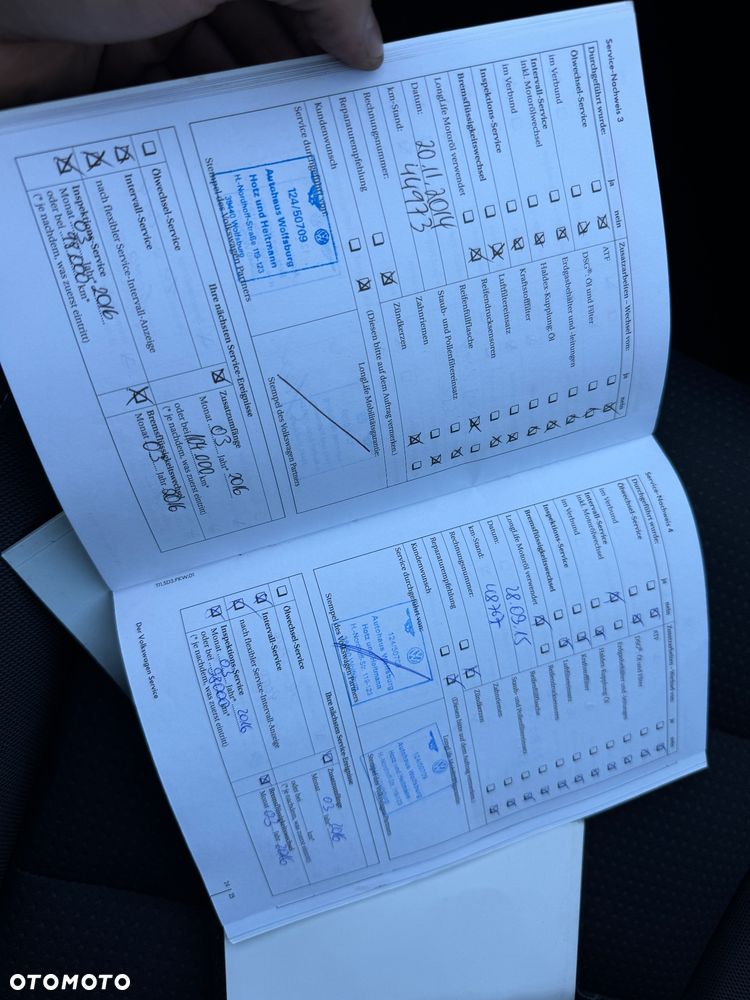 Service-Nachweis 3
Durchgeführt wurde:
ja
nein
Ölwechsel-Service
im Verbund
Intervall-Service
inkl. Motorölwechsel
im Verbund
Inspektions-Service
Bremsflüssigkeitswechsel
LongLife Motoröl verwendet
Datum:
20.11.2014
km-Stand:
44973
Rechnungsnummer:
Reparaturempfehlung
Kundenwunsch
Service durchgeführt von:
124/50709
Autohaus Wolfsburg
Hotz und Heitmann
H.-Nordhoff-Straße 119-123
38440 Wolfsburg
Stempel des Volkswagen Partners
Zusatzarbeiten – Wechsel von:
ja
nein
ATF
DSG®-Öl und Filter
Erdgasbehälter und -leitungen
Haldex Kupplung: Öl
Kraftstofffilter
Luftfiltereinsatz
Reifendrucksensoren
Reifenfüllflasche
Staub- und Pollenfiltereinsatz
Zahnriemen
Zündkerzen
(Diesen bitte auf dem Auftrag vermerken.)
LongLife Mobilitätsgarantie
Stempel des Volkswagen Partners
Ihre nächsten Service-Ereignisse
Ölwechsel-Service
Intervall-Service
nach flexibler Service-Intervall-Anzeige
Inspektions-Service
Monat
Jahr* 2016
oder bei
km*
(* je nachdem, was zuerst eintritt)
Zusatzumfänge
Monat 03 Jahr* 2016
oder bei
km*
(* je nachdem, was zuerst eintritt)
Bremsflüssigkeitswechsel
Monat 03 Jahr 2016
Service-Nachweis 4
Durchgeführt wurde:
ja
nein
Ölwechsel-Service
im Verbund
Intervall-Service
inkl. Motorölwechsel
im Verbund
Inspektions-Service
Bremsflüssigkeitswechsel
LongLife Motoröl verwendet
Datum:
28.09.15
km-Stand:
Rechnungsnummer:
Reparaturempfehlung
Kundenwunsch
Service durchgeführt von:
Autohaus Wolfsburg
Hotz und Heitmann
Stempel des Volkswagen Partners
Zusatzarbeiten – Wechsel von:
ja
nein
ATF
DSG®-Öl und Filter
Erdgasbehälter und -leitungen
Haldex Kupplung: Öl
Kraftstofffilter
Luftfiltereinsatz
Reifendrucksensoren
Reifenfüllflasche
Staub- und Pollenfiltereinsatz
Zahnriemen
Zündkerzen
(Diesen bitte auf dem Auftrag vermerken.)
124/50709
Autohaus Wolfsburg
Hotz und Heitmann
Ihre nächsten Service-Ereignisse
Ölwechsel-Service
Intervall-Service
nach flexibler Service-Intervall-Anzeige
Inspektions-Service
Monat
Jahr* 2016
oder bei
km*
(* je nachdem, was zuerst eintritt)
Zusatzumfänge
Monat 03 Jahr* 2016
oder bei
km*
(* je nachdem, was zuerst eintritt)
Bremsflüssigkeitswechsel
Monat 03 Jahr 2016
Der Volkswagen Service
OTOMOTO